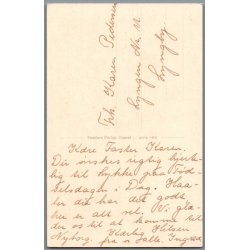 Frk. Karen Pedersen
Lyngen No. 11
Lyngby
Kære Faster Karen.
Du ønskes rigtig hjerte-
lig til Lykke paa Fød-
selsdagen i Dag. Haa-
ber du har det godt
her er alt vel. Vi glæ-
der os til at komme til
Nyborg. Kærlig Hilsen
fra os alle. Ingrid